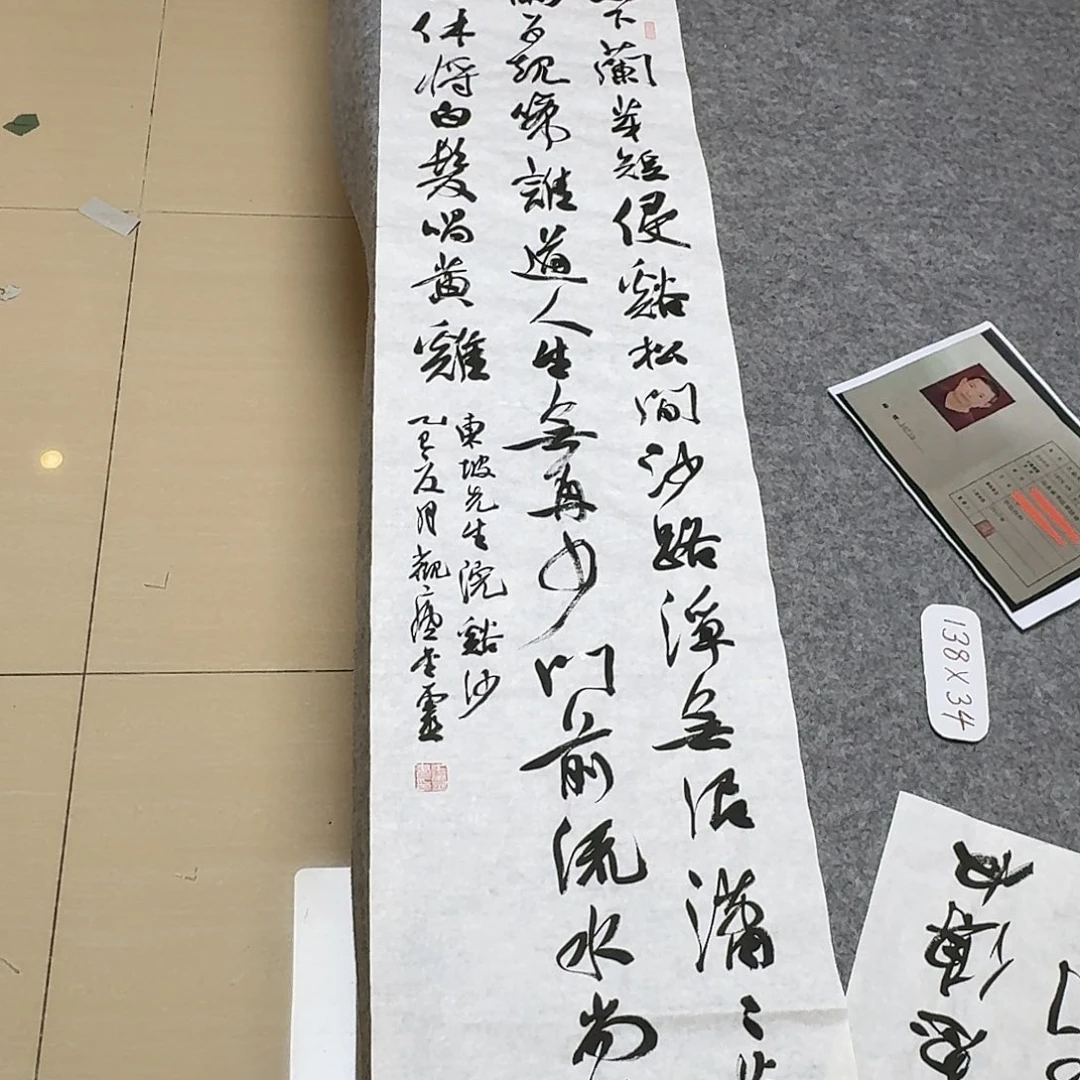 下蘭芽短侵谿松間沙路淨無泥瀟〻
子規啼誰道人生無再少門前流水尚
休將白髮唱黃雞
東坡先生浣谿沙
乙巳
月觀
138X34